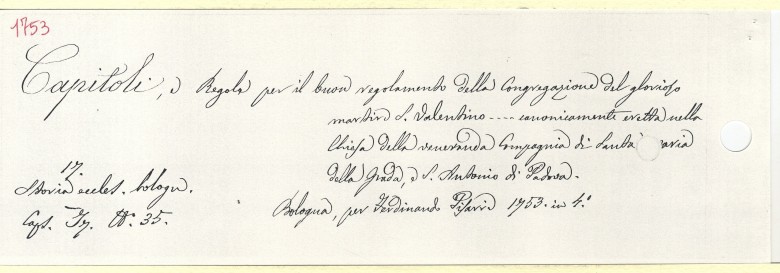 1753
Capitoli, e Regole per il buon regolamento della Congregazione del glorioso
martire S. Valentino ---- canonicamente eretta nella
Chiesa della veneranda Compagnia di Santa aria
della Grada, e S. Antonio di Padova.
17.
Storia eccles. bologn.
Caps. N.º 35.
Bologna, per Ferdinando Pisarri 1753. in 4.º